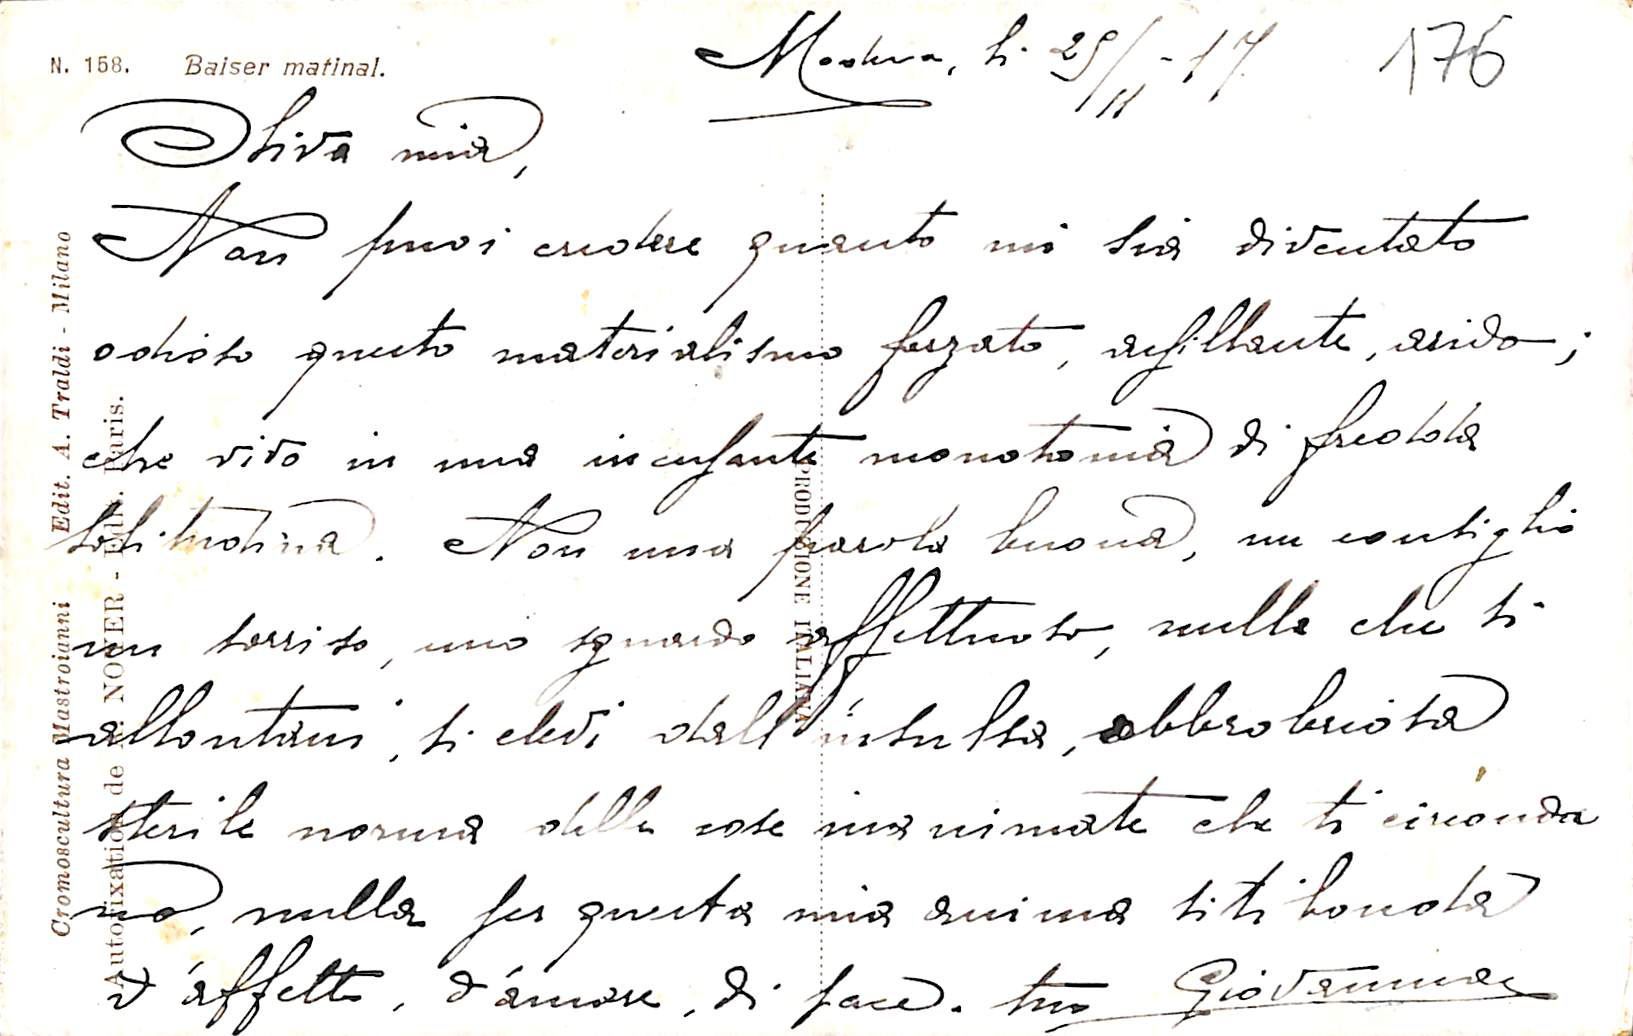 N. 158. Baiser matinal.
Modena, li 25/11-17
176
Oliva mia,
Non puoi credere quanto mi sia diventato
odioso questo materialismo forzato, assillante, arido;
che vivo in una incessante monotonia di fredda
solitudine. Non una parola buona, un consiglio
un sorriso, uno sguardo affettuoso, nulla che si
allontani, si elevi dall'insulsa, obbrobriosa
sterile norma delle cose inanimate che ti circonda
no, nulla per questa mia anima sitibonda
d'affetto, d'amore, di pace. tuo
Cromoscultura Mastroianni Edit. A. Traldi - Milano
Autofixation de A. NOYER - Edit. Paris.
PRODUZIONE ITALIANA